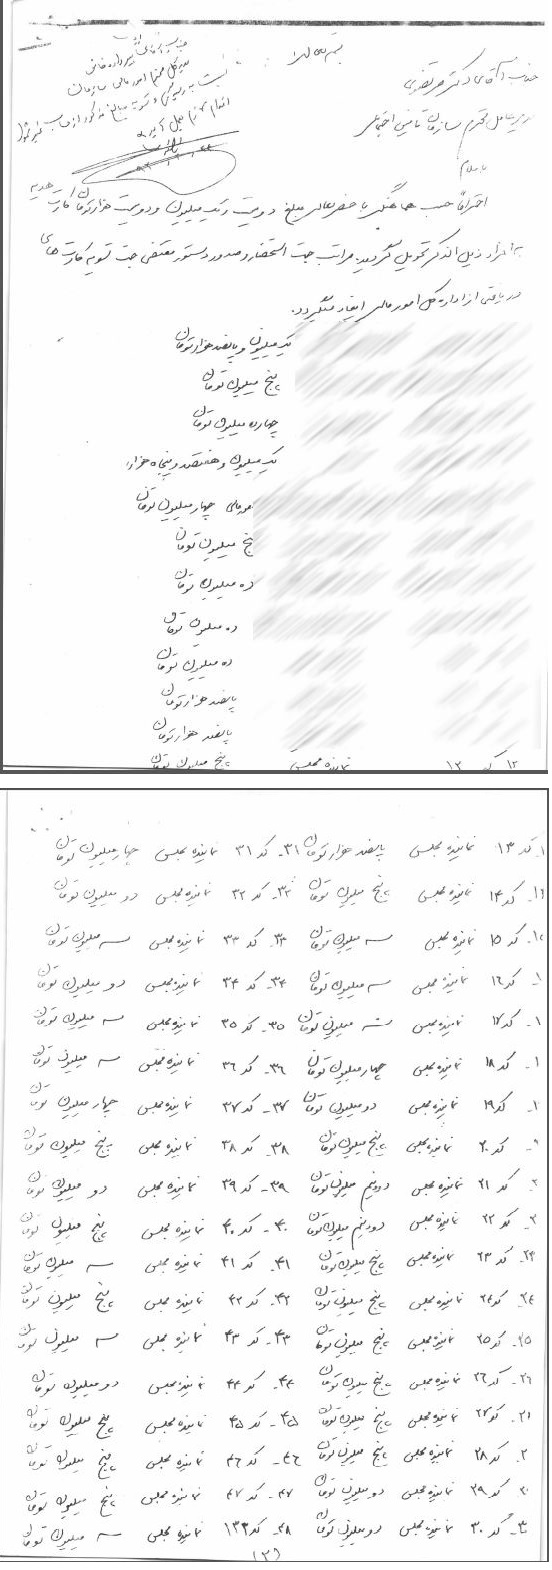 بسمه تعالی
جناب آقای دکتر مرتضوی
مدیرعامل محترم سازمان تامین اجتماعی
با سلام
احتراماً حسب هماهنگی با حضرتعالی مبلغ دویست و یک میلیون و دویست هزار تومان کارت هدیه
به افراد ذیل الذکر تحویل گردید. مراتب جهت استحضار و صدور دستور مقتضی جهت تسویه کارت های
دریافتی از اداره کل امور مالی ایفاد میگردد.
مدیرکل محترم امور مالی سازمان
یک میلیون و پانصد هزار تومان
پنج میلیون تومان
چهارده میلیون تومان
یک میلیون و هفتصد و پنجاه هزار
امور مالی چهار میلیون تومان
پنج میلیون تومان
ده میلیون تومان
ده میلیون تومان
ده میلیون تومان
پانصد هزار تومان
پانصد هزار تومان
۱۲ کد ۱۲ نماینده مجلس پنج میلیون تومان
کد ۱۳ نماینده مجلس پانصد هزار تومان ۳۱- کد ۳۱ نماینده مجلس چهار میلیون تومان
کد ۱۴ نماینده مجلس پنج میلیون تومان ۳۲- کد ۳۲ نماینده مجلس دو میلیون تومان
کد ۱۵ نماینده مجلس سه میلیون تومان ۳۳- کد ۳۳ نماینده مجلس سه میلیون تومان
کد ۱۶ نماینده مجلس سه میلیون تومان ۳۴- کد ۳۴ نماینده مجلس دو میلیون تومان
کد ۱۷ نماینده مجلس سه میلیون تومان ۳۵- کد ۳۵ نماینده مجلس سه میلیون تومان
کد ۱۸ نماینده مجلس چهار میلیون تومان ۳۶- کد ۳۶ نماینده مجلس سه میلیون تومان
کد ۱۹ نماینده مجلس دو میلیون تومان ۳۷- کد ۳۷ نماینده مجلس چهار میلیون تومان
کد ۲۰ نماینده مجلس پنج میلیون تومان ۳۸- کد ۳۸ نماینده مجلس پنج میلیون تومان
کد ۲۱ نماینده مجلس دو و نیم میلیون تومان ۳۹- کد ۳۹ نماینده مجلس دو میلیون تومان
کد ۲۲ نماینده مجلس دو و نیم میلیون تومان ۴۰- کد ۴۰ نماینده مجلس پنج میلیون تومان
۲۳- کد ۲۳ نماینده مجلس پنج میلیون تومان ۴۱- کد ۴۱ نماینده مجلس سه میلیون تومان
۲۴- کد ۲۴ نماینده مجلس پنج میلیون تومان ۴۲- کد ۴۲ نماینده مجلس پنج میلیون تومان
۲۵- کد ۲۵ نماینده مجلس پنج میلیون تومان ۴۳- کد ۴۳ نماینده مجلس سه میلیون تومان
۲۶- کد ۲۶ نماینده مجلس پنج میلیون تومان ۴۴- کد ۴۴ نماینده مجلس دو میلیون تومان
کد ۲۷ نماینده مجلس پنج میلیون تومان ۴۵- کد ۴۵ نماینده مجلس پنج میلیون تومان
کد ۲۸ نماینده مجلس پنج میلیون تومان ۴۶- کد ۴۶ نماینده مجلس پنج میلیون تومان
کد ۲۹ نماینده مجلس دو میلیون تومان ۴۷- کد ۴۷ نماینده مجلس پنج میلیون تومان
۳۰- کد ۳۰ نماینده مجلس دو میلیون تومان ۴۸- کد ۱۳۳ نماینده مجلس سه میلیون تومان
(۲)